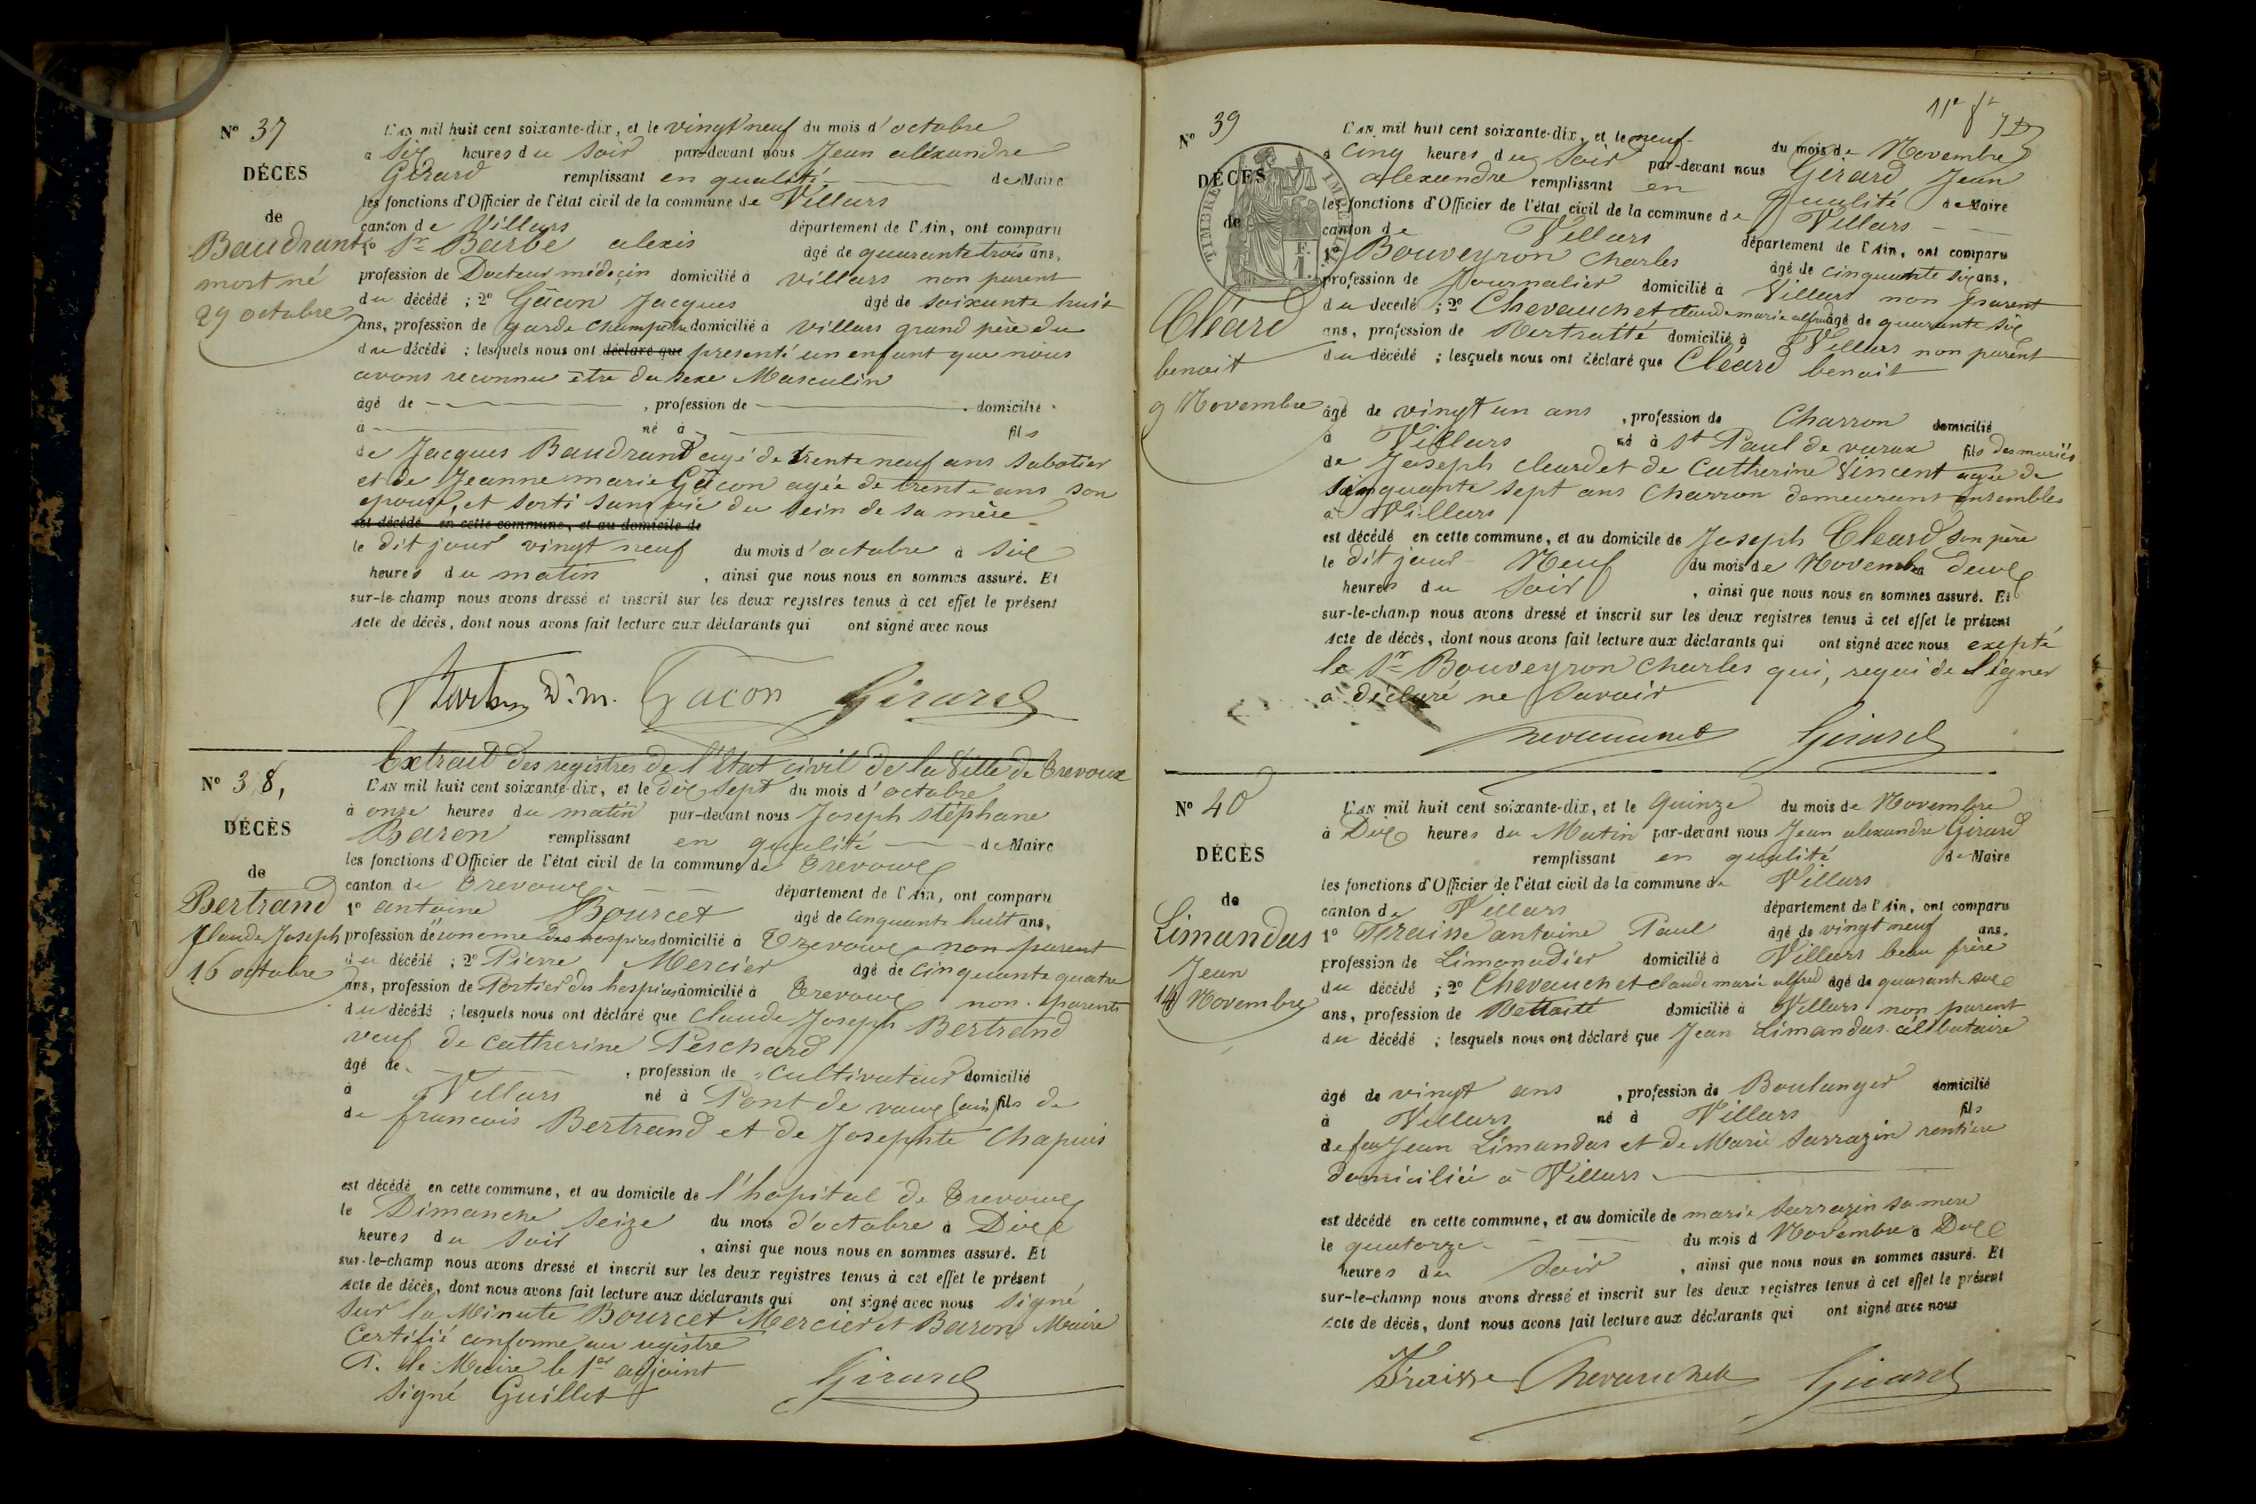 N° 37
DÉCÈS
de
Baudrant
mort né
29 octobre
L'AN mil huit cent soixante-dix, et le vingt neuf du mois d'octobre
à six heures du soir par-devant nous Jean aléxandre
Girard remplissant en qualité de Maire
les fonctions d'Officier de l'état civil de la commune de Villars
canton de Villars département de l'Ain, ont comparu
1° Sr Barbe alexis âgé de quarante trois ans,
profession de Docteur médecin domicilié à villars non parent
du décédé ; 2° Gâcon Jacques âgé de soixante huit
ans, profession de garde champêtre domicilié à villars grand père du
du décédé ; lesquels nous ont déclaré que presenté un enfant que nous
avons reconnu être du sexe Masculin
âgé de , profession de domicilié
à né à fils
de Jacques Baudrand agé de trente neuf ans sabotier
et de Jeanne marie Gâcon agée de trente ans son
epouse, et sorti sans vie du sein de sa mère
est décédé en cette commune, et au domicile de
le dit jour vingt neuf du mois d'octobre à six
heures du matin , ainsi que nous nous en sommes assuré. Et
sur-le-champ nous avons dressé et inscrit sur les deux registres tenus à cet effet le présent
Acte de décès, dont nous avons fait lecture aux déclarants qui ont signé avec nous
Barbe D.m. Gacon Girard
Extrait des registres de l'Etat civil de la Ville de Trevoux
N° 38,
DÉCÈS
de
Bertrand
Claude Joseph
16 octobre
L'AN mil huit cent soixante-dix, et le dix sept du mois d'octobre
à onze heures du matin par-devant nous Joseph stéphane
Baron remplissant en qualité de Maire
les fonctions d'Officier de l'état civil de la commune de Trevoux
canton de Trevoux département de l'Ain, ont comparu
1° antoine Bourcet âgé de cinquante huit ans,
profession de économe des hospices domicilié à Trevoux non parent
du décédé ; 2° Pierre Mercier âgé de cinquante quatre
ans, profession de Portier des hospices domicilié à Trevoux non parents
du décédé ; lesquels nous ont déclaré que Claude Joseph Bertrand
veuf de Catherine Peschard
âgé de , profession de cultivateur domicilié
à Villars né à Pont de vaux (ain) fils de
de francois Bertrand et de Josephte Chapuis
est décédé en cette commune, et au domicile de l'hopital de Trevoux
le Dimanche seize du mois d'octobre à Dix
heures du soir , ainsi que nous nous en sommes assuré. Et
sur-le-champ nous avons dressé et inscrit sur les deux registres tenus à cet effet le présent
Acte de décès, dont nous avons fait lecture aux déclarants qui ont signé avec nous signé
sur la Minute Bourcet Mercier et Baron Maire
Certifié conforme au registre
P. le Maire le 1er adjoint
signé Guillet Girard
N° 39
DÉCÈS
de
TIMBRE IMPÉRIAL
Cléard
benoit
9 Novembre
L'AN mil huit cent soixante-dix, et le neuf du mois de Novembre
à cinq heures du soir par-devant nous Girard Jean
alexandre remplissant en qualité de Maire
les fonctions d'Officier de l'état civil de la commune de Villars
canton de Villars département de l'Ain, ont comparu
1° Bouveyron Charles âgé de cinquante six ans,
profession de Journalier domicilié à Villars non parent
du décédé ; 2° Chevauchet claude marie alfred âgé de quarante six
ans, profession de Rertraité domicilié à Villars non parent
du décédé ; lesquels nous ont déclaré que Cléard benoit
âgé de vingt un ans , profession de Charron domicilié
à Villars né à St Paul de varax fils des mariés
de Joseph cleard et de Catherine Vincent agée de
cinquante sept ans Charron demeurant ensembles
à Villars
est décédé en cette commune, et au domicile de Joseph Cleard son père
le dit jour Neuf du mois de Novembre à deux
heures du soir , ainsi que nous nous en sommes assuré. Et
sur-le-champ nous avons dressé et inscrit sur les deux registres tenus à cet effet le présent
Acte de décès, dont nous avons fait lecture aux déclarants qui ont signé avec nous exepté
le Sr Bouveyron Charles qui, requi de signer
a déclaré ne savoir
Chevauchet Girard
N° 40
DÉCÈS
de
Limandas
Jean
14 Novembre
L'AN mil huit cent soixante-dix, et le Quinze du mois de Novembre
à Dix heures du Matin par-devant nous Jean alexandre Girard
remplissant en qualité de Maire
les fonctions d'Officier de l'état civil de la commune de Villars
canton de Villars département de l'Ain, ont comparu
1° Fraisse antoine Paul âgé de vingt neuf ans,
profession de Limonadier domicilié à Villars beau frère
du décédé ; 2° Chevauchet claude marie alfred âgé de quarante six
ans, profession de Retraité domicilié à Villars non parent
du décédé ; lesquels nous ont déclaré que Jean Limandas célibataire
âgé de vingt ans , profession de Boulanger domicilié
à Villars né à Villars fils
de feu Jean Limandas et de Marie Sarrazin rentière
domiciliée à Villars
est décédé en cette commune, et au domicile de marie Sarrazin sa mere
le quatorze du mois d Novembre à Dix
heures du soir , ainsi que nous nous en sommes assuré. Et
sur-le-champ nous avons dressé et inscrit sur les deux registres tenus à cet effet le présent
Acte de décès, dont nous avons fait lecture aux déclarants qui ont signé avec nous
Fraisse Chevauchet Girard